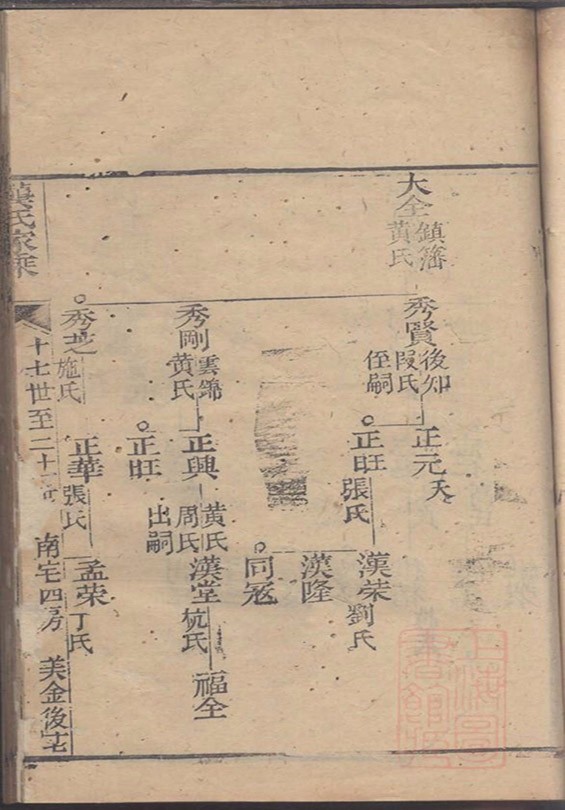 大全
鎮籓
黄氏
秀賢
後知
段氏
侄嗣
正元
夭
正旺
張氏
漢荣
劉氏
漢隆
同冦
秀剛
雲錦
黄氏
正興
黄氏
周氏
漢堂
杭氏
福全
正旺
出嗣
秀芝
施氏
正華
張氏
孟荣
丁氏
龔氏家乘
十七世至二十
南宅四房
美金後